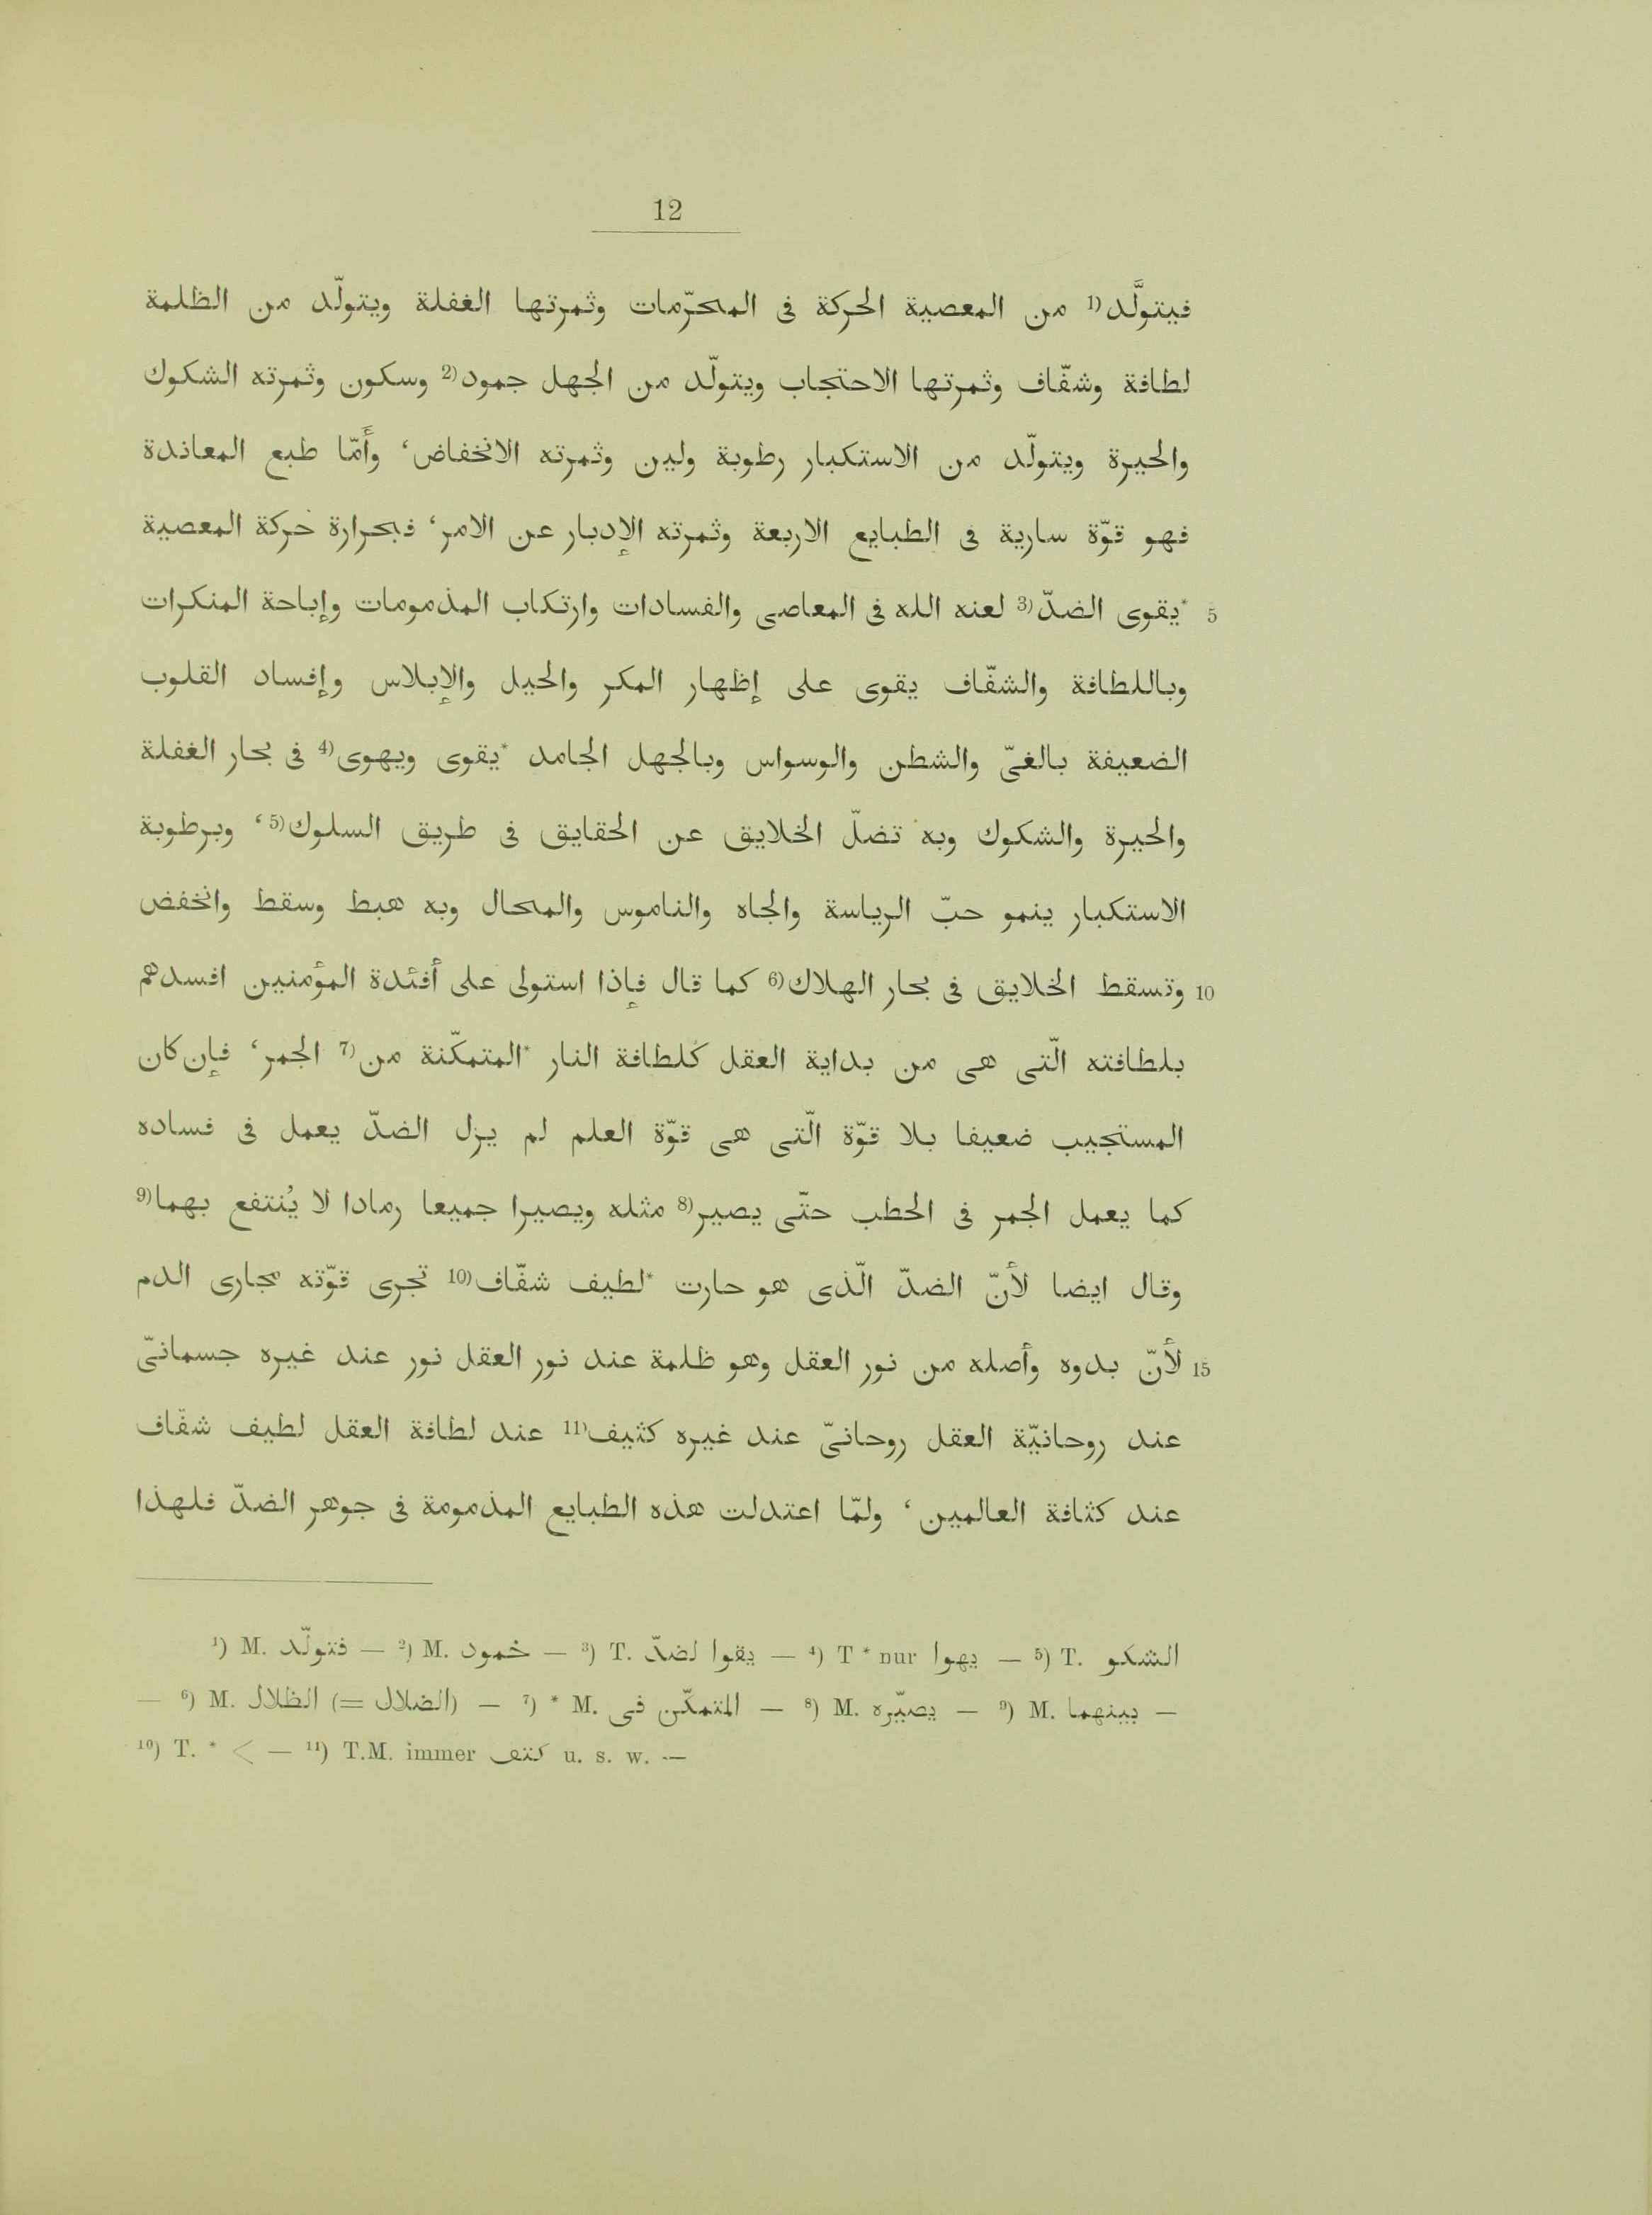 12
فيتولَّد(1 من المعصية الحركة فى المحرّمات وثمرتها الغفلة ويتولّد من الظلمة
لطافة وشفّاف وثمرتها الاحتجاب ويتولّد من الجهل جمود(2 وسكون وثمرته الشكوك
والحيرة ويتولّد من الاستكبار رطوبة ولين وثمرته الانخفاض، وأَمّا طبع المعاندة
فهو قوّة سارية فى الطبايع الاربعة وثمرته الإدبار عن الامر، فبحرارة حركة المعصية
5 *يقوى الضدّ(3 لعنه الله فى المعاصى والفسادات وارتكاب المذمومات وإباحة المنكرات
وباللطافة والشفّاف يقوى على إظهار المكر والحيل والإبلاس وإفساد القلوب
الضعيفة بالغىّ والشطن والوسواس وبالجهل الجامد *يقوى ويهوى(4 فى بحار الغفلة
والحيرة والشكوك وبه تضلّ الخلايق عن الحقايق فى طريق السلوك(5، وبرطوبة
الاستكبار ينمو حبّ الرياسة والجاه والناموس والمحال وبه هبط وسقط وانخفض
10 وتسقط الخلايق فى بحار الهلاك(6 كما قال فإذا استولى على أفئدة المؤمنين افسدهم
بلطافته الّتى هى من بداية العقل كلطافة النار *المتمكّنة من(7 الجمر، فإن كان
المستجيب ضعيفا بلا قوّة الّتى هى قوّة العلم لم يزل الضدّ يعمل فى فساده
كما يعمل الجمر فى الحطب حتّى يصير(8 مثله ويصيرا جميعا رمادا لا يُنتفع بهما(9
وقال ايضا لأنّ الضدّ الّذى هو حارت *لطيف شفّاف(10 تجرى قوّته مجارى الدم
15 لأنّ بدوه وأصله من نور العقل وهو ظلمة عند نور العقل نور عند غيره جسمانىّ
عند روحانيّة العقل روحانىّ عند غيره كثيف(11 عند لطافة العقل لطيف شفّاف
عند كثافة العالمين، ولمّا اعتدلت هذه الطبايع المذمومة فى جوهر الضدّ فلهذا
1) M. فتولّد — 2) M. خمود — 3) T. يقوا لضدّ — 4) T * nur يهوا — 5) T. الشكو
— 6) M. الظلال (= الضلال) — 7) * M. المتمكّن فى — 8) M. يصيّره — 9) M. بينهما —
10) T. * < — 11) T.M. immer كتف u. s. w. —